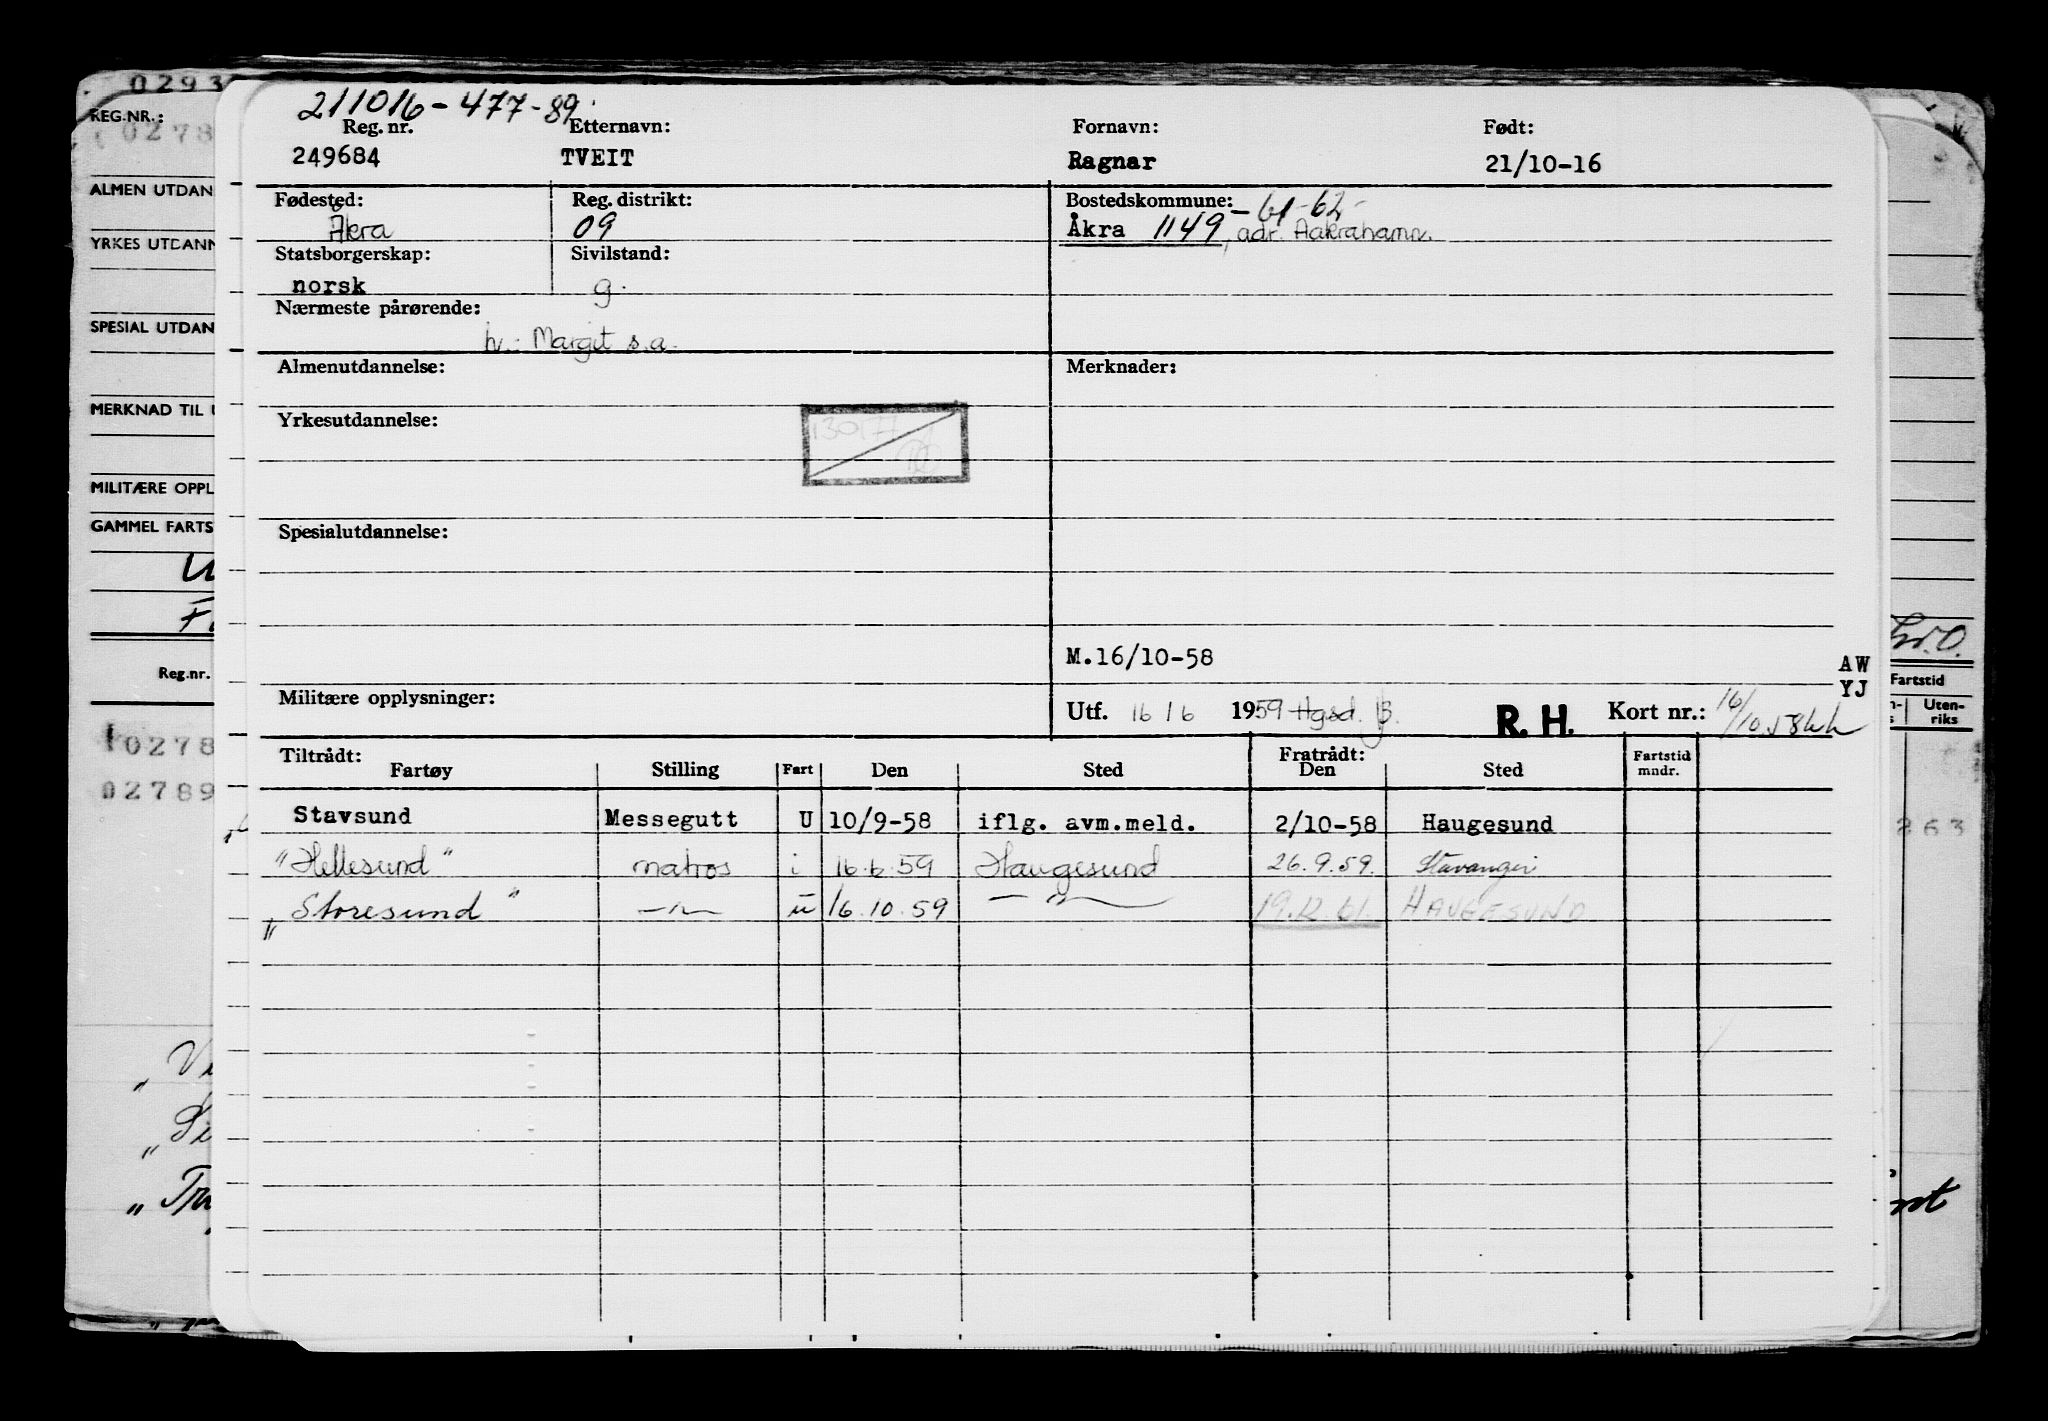 0293
REG.NR.:
0278
ALMEN UTDAN
YRKES UTDANN
SPESIAL UTDAN
MERKNAD TIL U
MILITÆRE OPPL
GAMMEL FARTS
Reg.nr.
10278
02789
211016-477-89.
Reg. nr. Etternavn: Fornavn: Født:
249684 TVEIT Ragnar 21/10-16
Fødested: Reg. distrikt: Bostedskommune: -61-62-
Åkra 09 Åkra 1149, adr. Aakrahamn.
Statsborgerskap: Sivilstand:
norsk g.
Nærmeste pårørende:
h.: Margit s.a.
Almenutdannelse: Merknader:
Yrkesutdannelse:
Spesialutdannelse:
M.16/10-58
AW
YJ
Militære opplysninger: Utf. 16/6 1959 Hgsd. R. H. Kort nr.: 16/10.58
Tiltrådt: Fratrådt:
Fartøy Stilling Fart Den Sted Den Sted Fartstid mndr.
Stavsund Messegutt U 10/9-58 iflg. avm.meld. 2/10-58 Haugesund
"Hellesund" matros i 16.6.59 Haugesund 26.9.59. Stavanger
"Storesund" -"- u 16.10.59 -"- 19.12.61. HAUGESUND
Fartstid
Uten-
riks
263